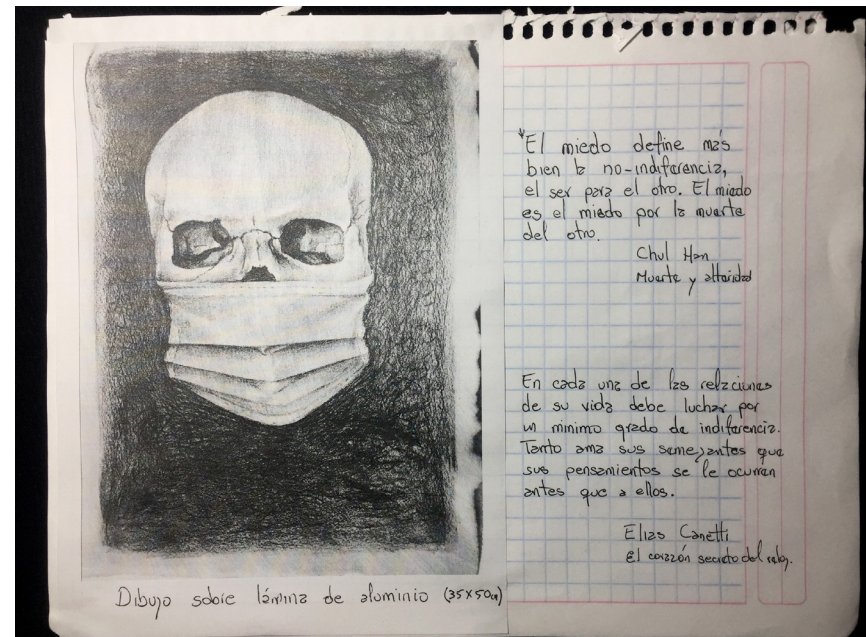 "El miedo define más
bien la no-indiferencia,
el ser para el otro. El miedo
es el miedo por la muerte
del otro.
Chul Han
Muerte y alteridad
En cada una de las relaciones
de su vida debe luchar por
un mínimo grado de indiferencia.
Tanto ama sus semejantes que
sus pensamientos se le ocurren
antes que a ellos.
Elias Canetti
El corazón secreto del reloj.
Dibujo sobre lámina de aluminio (35x50cm)